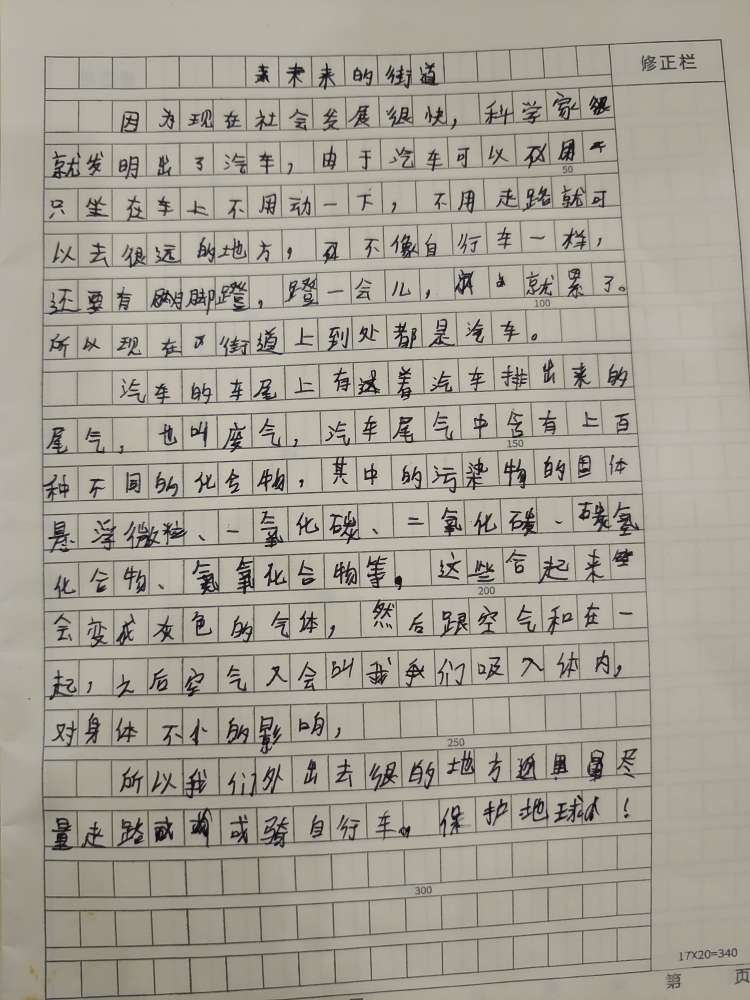 未来的街道
修正栏
因为现在社会发展很快，科学家很
就发明出了汽车，由于汽车可以不用
50
只坐在车上不用动一下，不用走路就可
以去很远的地方，不像自行车一样，
还要有脚蹬，蹬一会儿，就累了。
100
所以现在街道上到处都是汽车。
汽车的车尾上有着汽车排出来的
尾气，也叫废气，汽车尾气中含有上百
150
种不同的化合物，其中的污染物的固体
悬浮微粒、一氧化碳、二氧化碳、碳氢
化合物、氮氧化合物等。这些合起来
200
会变成灰色的气体，然后跟空气和在一
起，之后空气又会叫我们吸入体内，
对身体不小的影响，
250
所以我们外出去很的地方尽
量走路或骑自行车。保护地球！
300
17X20=340
第 页